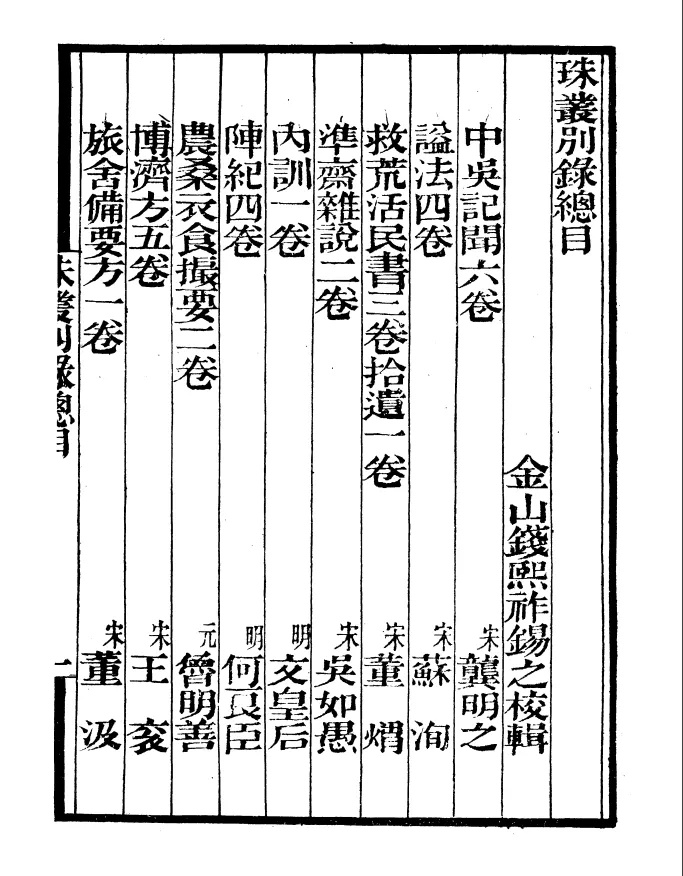 珠叢別錄總目
金山錢熙祚錫之校輯
中吳記聞六卷 宋 龔明之
諡法四卷 宋 蘇洵
救荒活民書三卷拾遺一卷 宋 董煟
準齋雜說二卷 宋 吳如愚
內訓一卷 明 文皇后
陣紀四卷 明 何良臣
農桑衣食撮要二卷 元 魯明善
博濟方五卷 宋 王袞
旅舍備要方一卷 宋 董汲
珠叢別錄總目 一